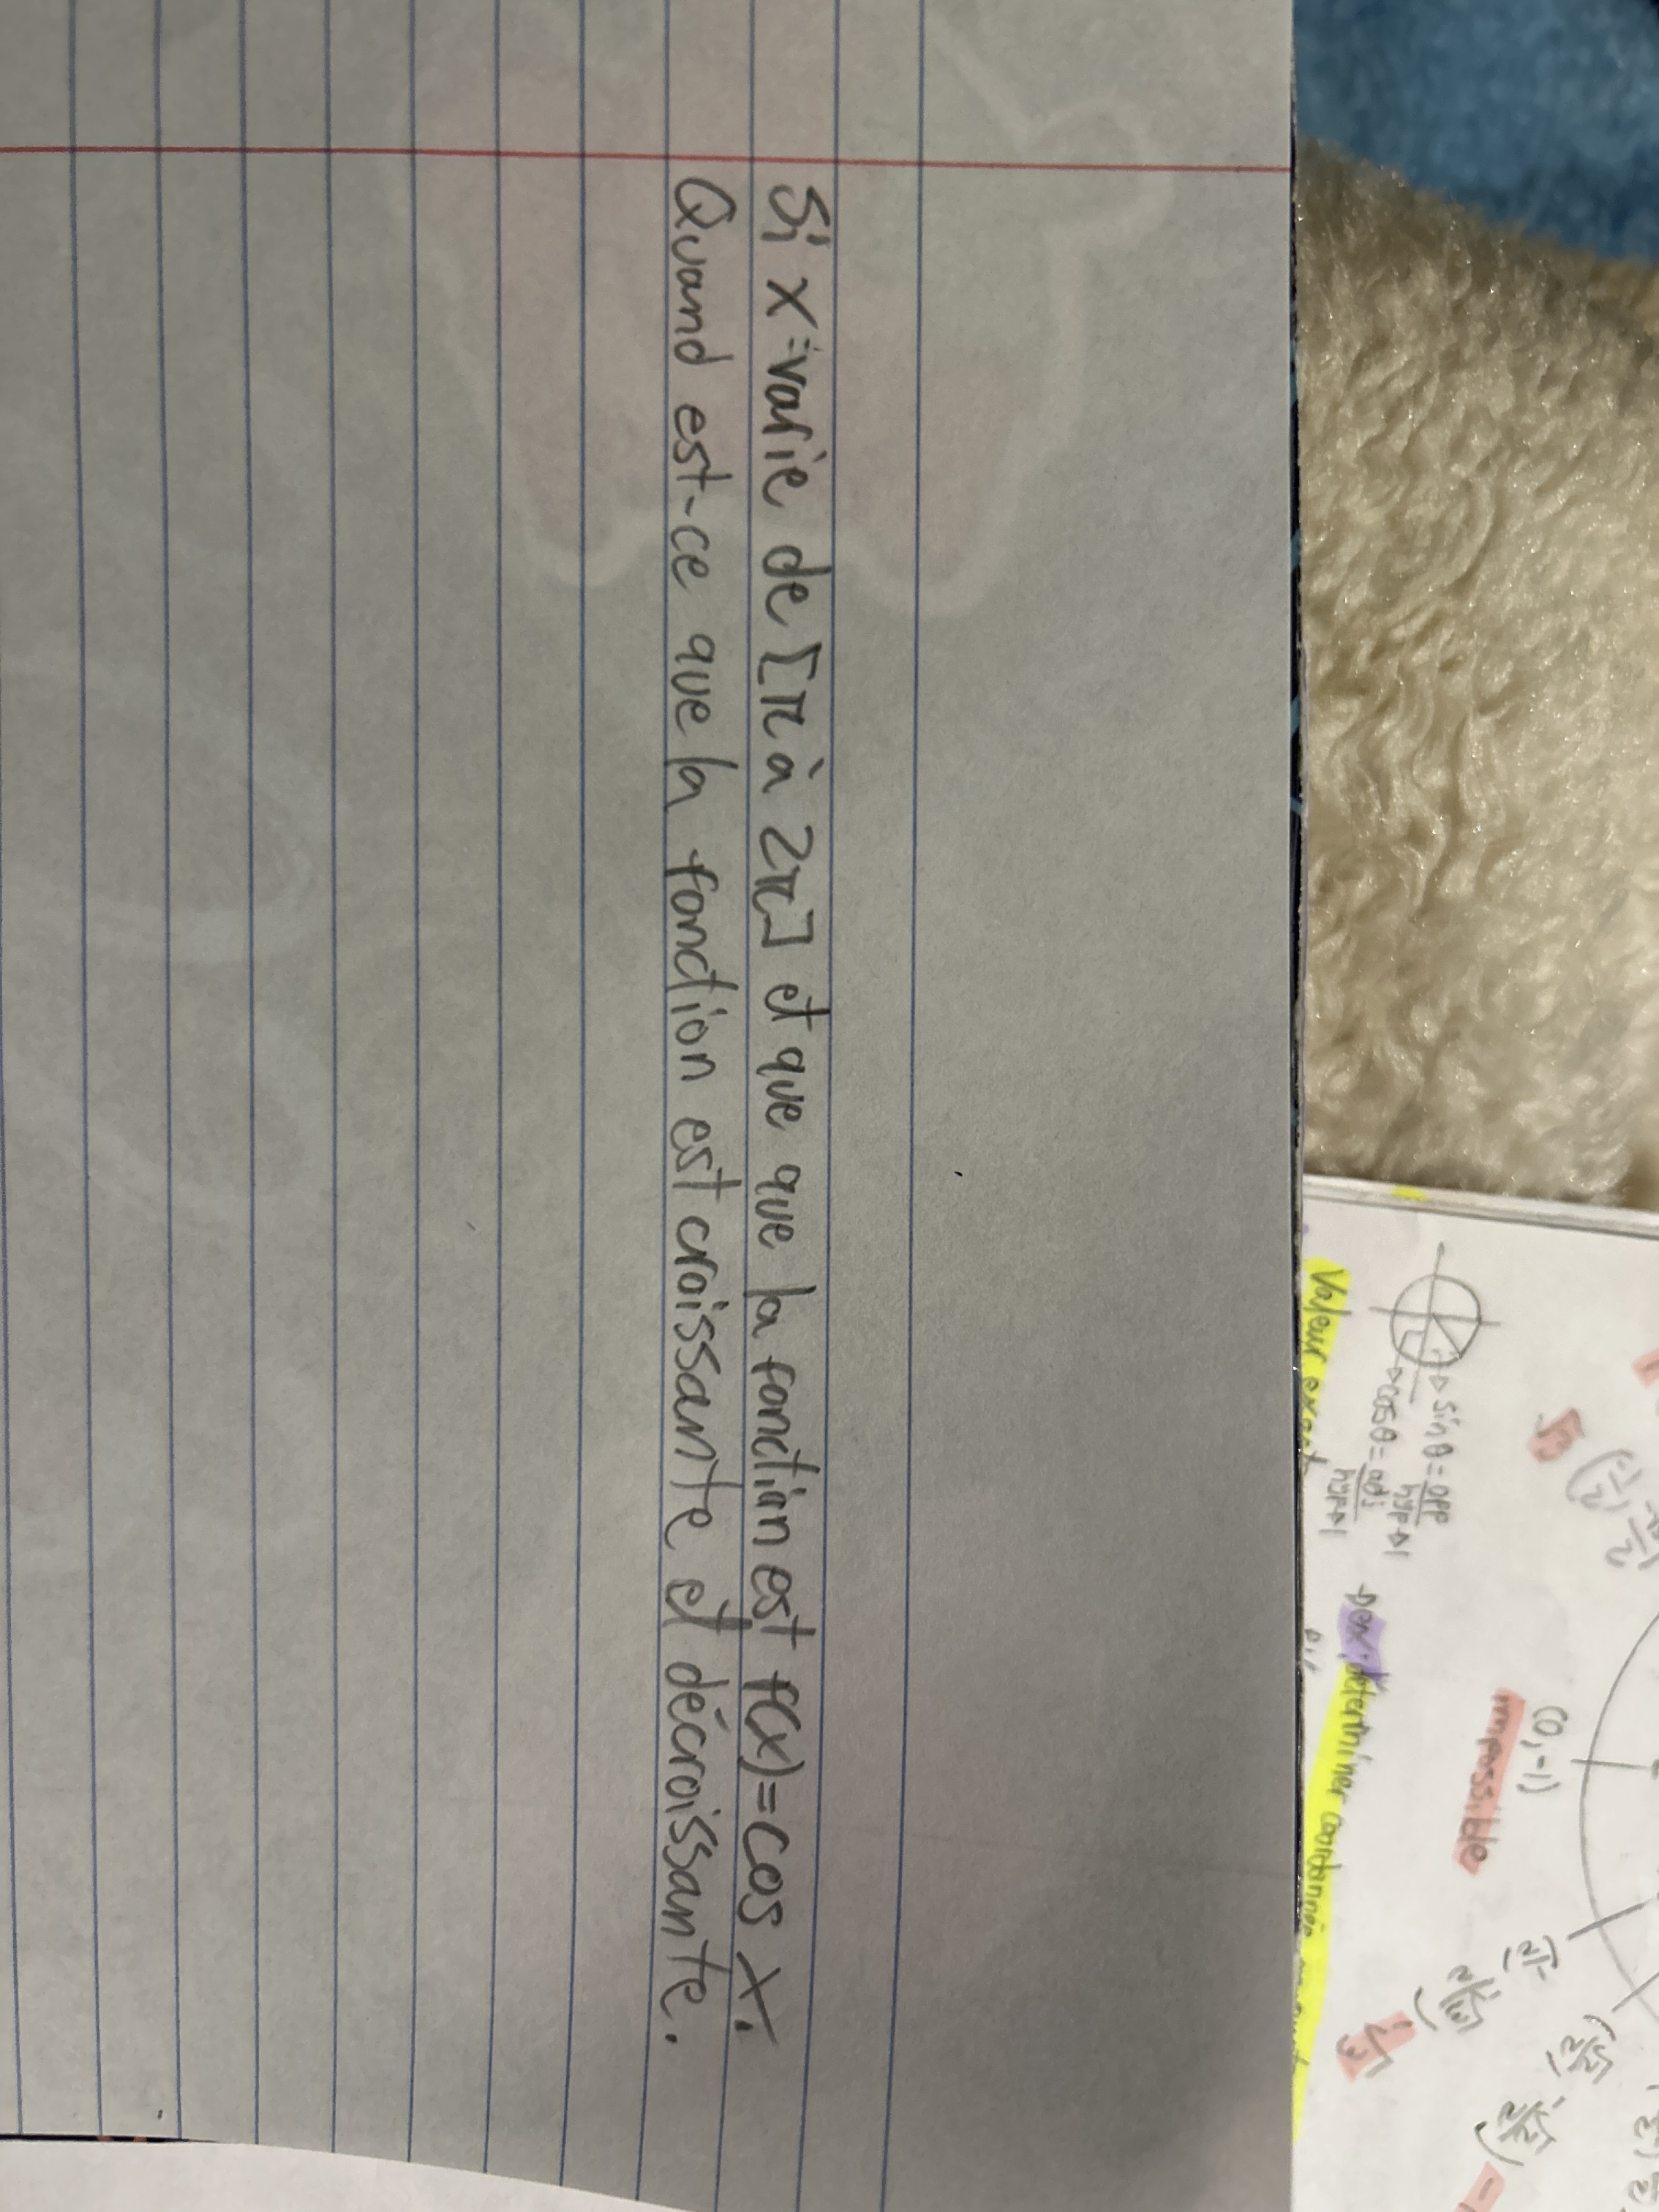 Si x=varie de [π à 2π] et que que la fonction est f(x)=cos x.
Quand est-ce que la fonction est croissante et décroissante.
sin θ = opp
hyp→1
cos θ = adj
hyp→1
Valeur exact
→ex: déterminer
(0,-1)
impossible